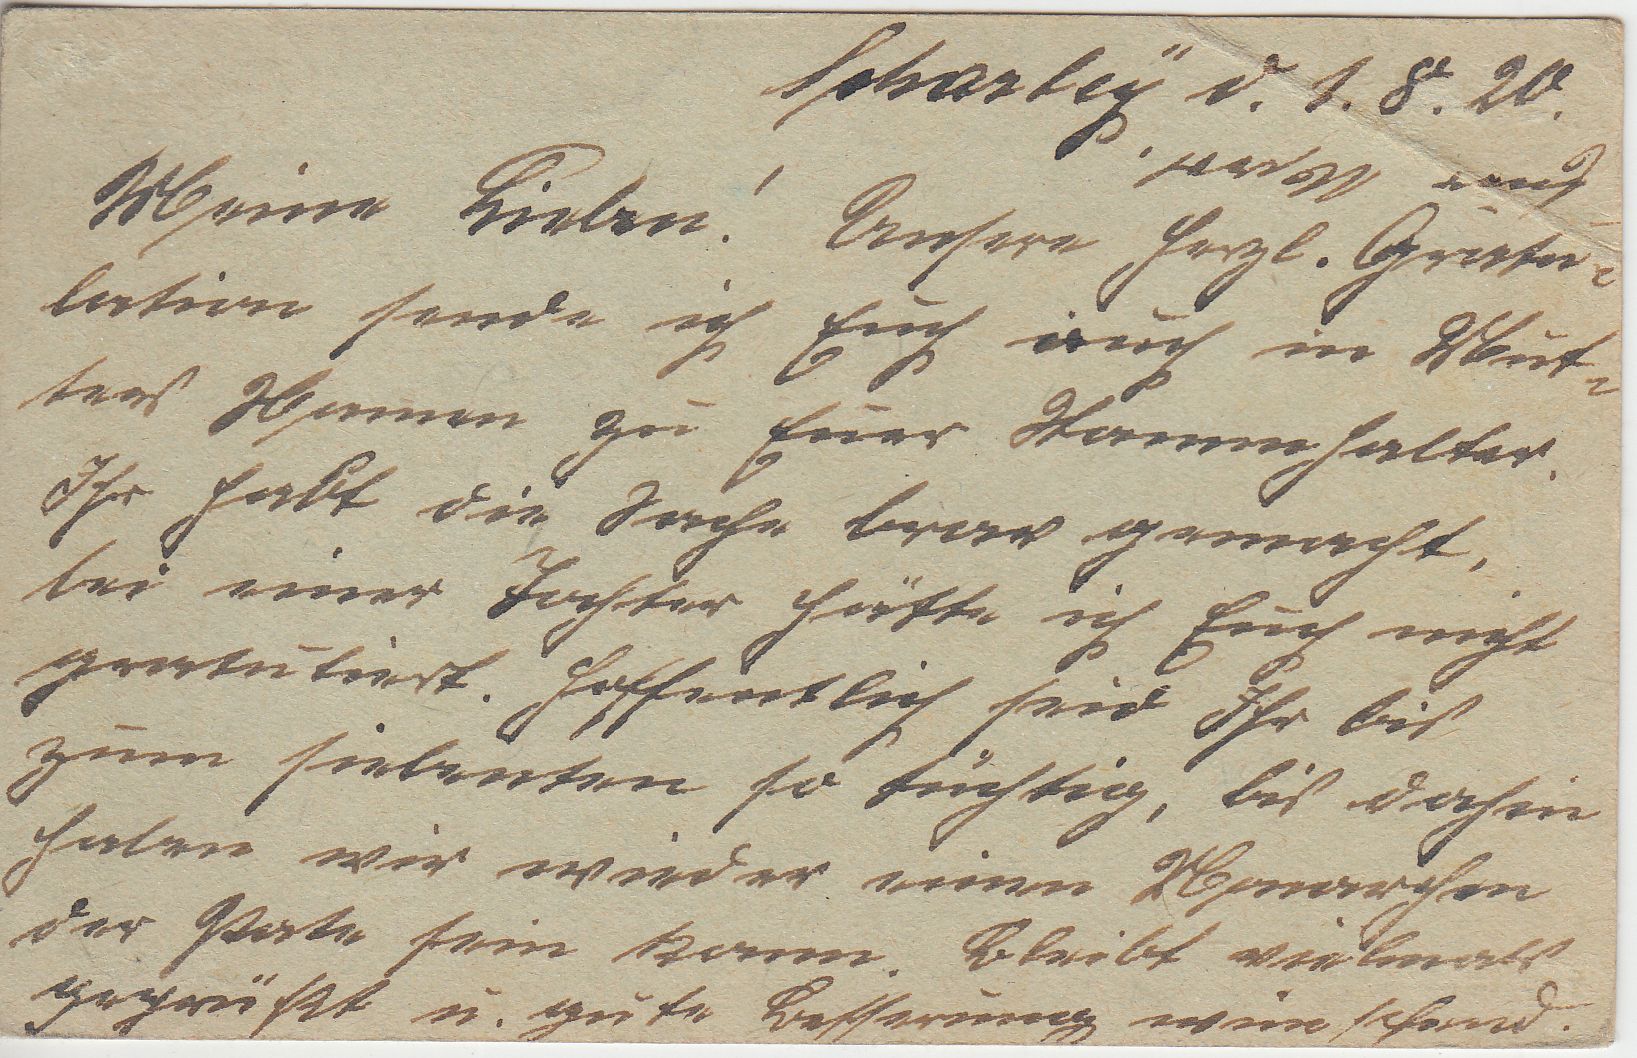 Scharley d. 1. 8. 20.
Meine Lieben! Unsere herzl. Gratu-
lation sende ich Euch auch in Mut-
ters Namen zu Euer Stammhalter.
Ihr habt die Sache brav gemacht,
bei einer Tochter hätte ich Euch nicht
gratuliert. Hoffentlich seid Ihr bis
zum siebenten so tüchtig, bis dahin
haben wir wieder einen Monarchen
der Pate sein kann. Bleibt vielmals
gegrüßt u. gute Besserung wünschend.
Euer